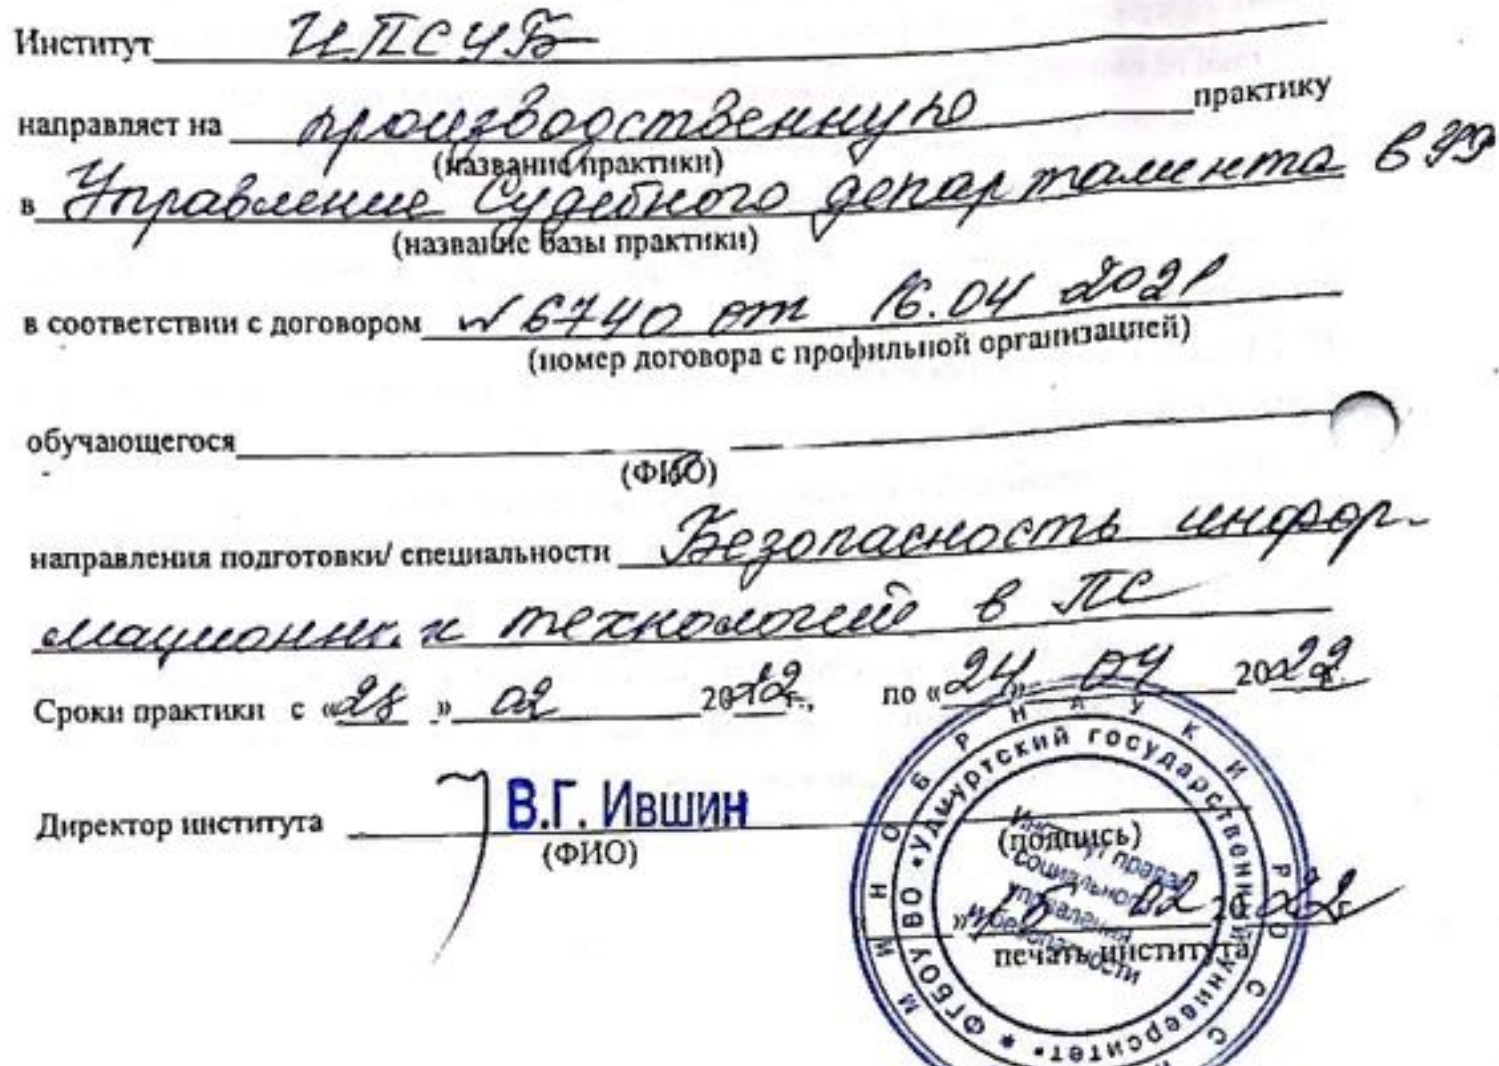 Институт ИПСУБ
направляет на производственную практику
(название практики)
в Управление Судебного департамента в УР
(название базы практики)
в соответствии с договором № 6740 от 16.04 2021
(номер договора с профильной организацией)
обучающегося
(ФИО)
направления подготовки/ специальности Безопасность инфор-
мационных технологий в ПС
Сроки практики с «28» 02 2022г., по «24» 04 2022г.
Директор института В.Г. Ившин
(ФИО) (подпись)
» 15 02 2022г
печать института
МИНОБРНАУКИ РОСС
ФГБОУ ВО «Удмуртский государственный университет»
Институт права,
социального
управления
и безопасности